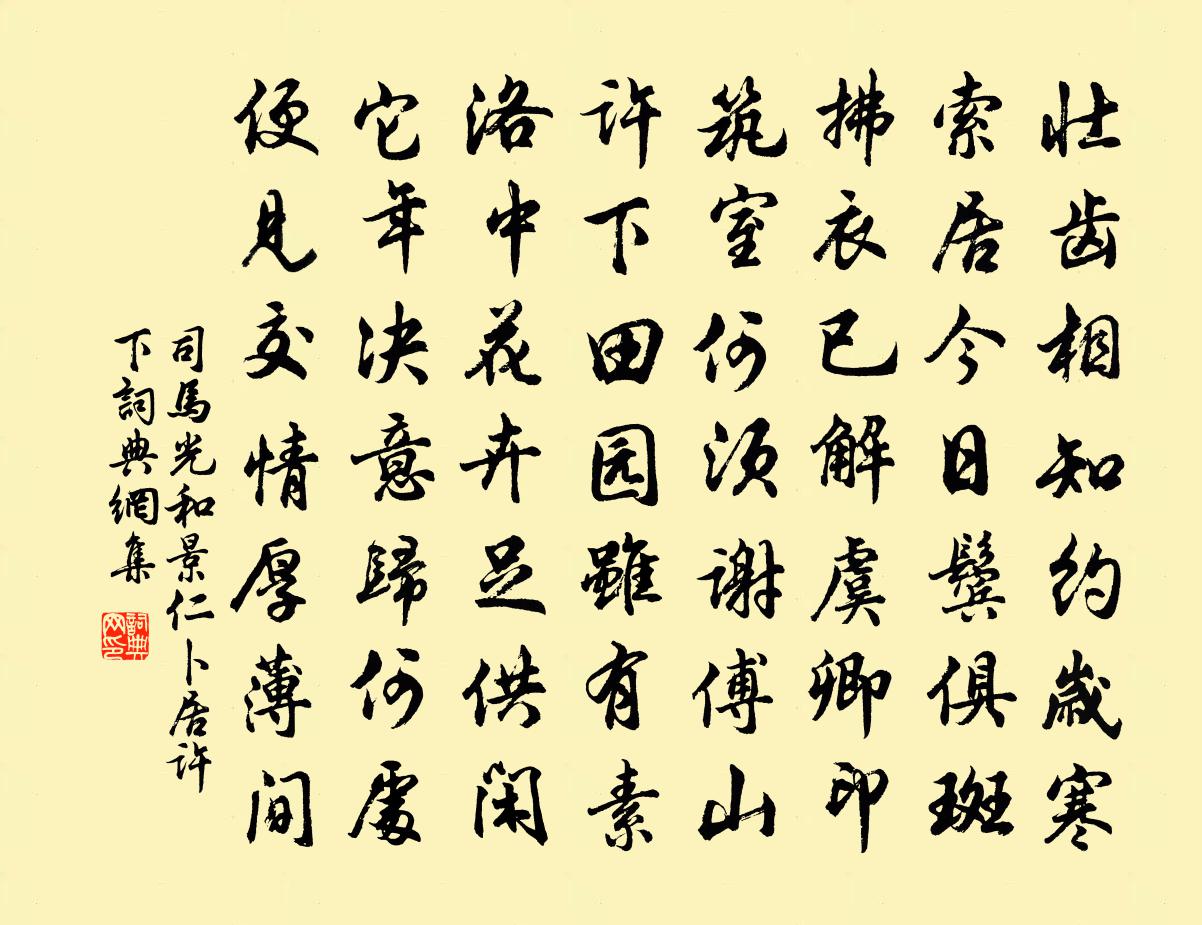 壮齿相知约歳寒
索居今日鬓俱斑
拂衣已解虞卿印
筑室何须谢傅山
许下田园雖有素
洛中花卉足供闲
它年决意歸何處
便见交情厚薄间
司馬光和景仁卜居许
下詞典網集
詞典网印